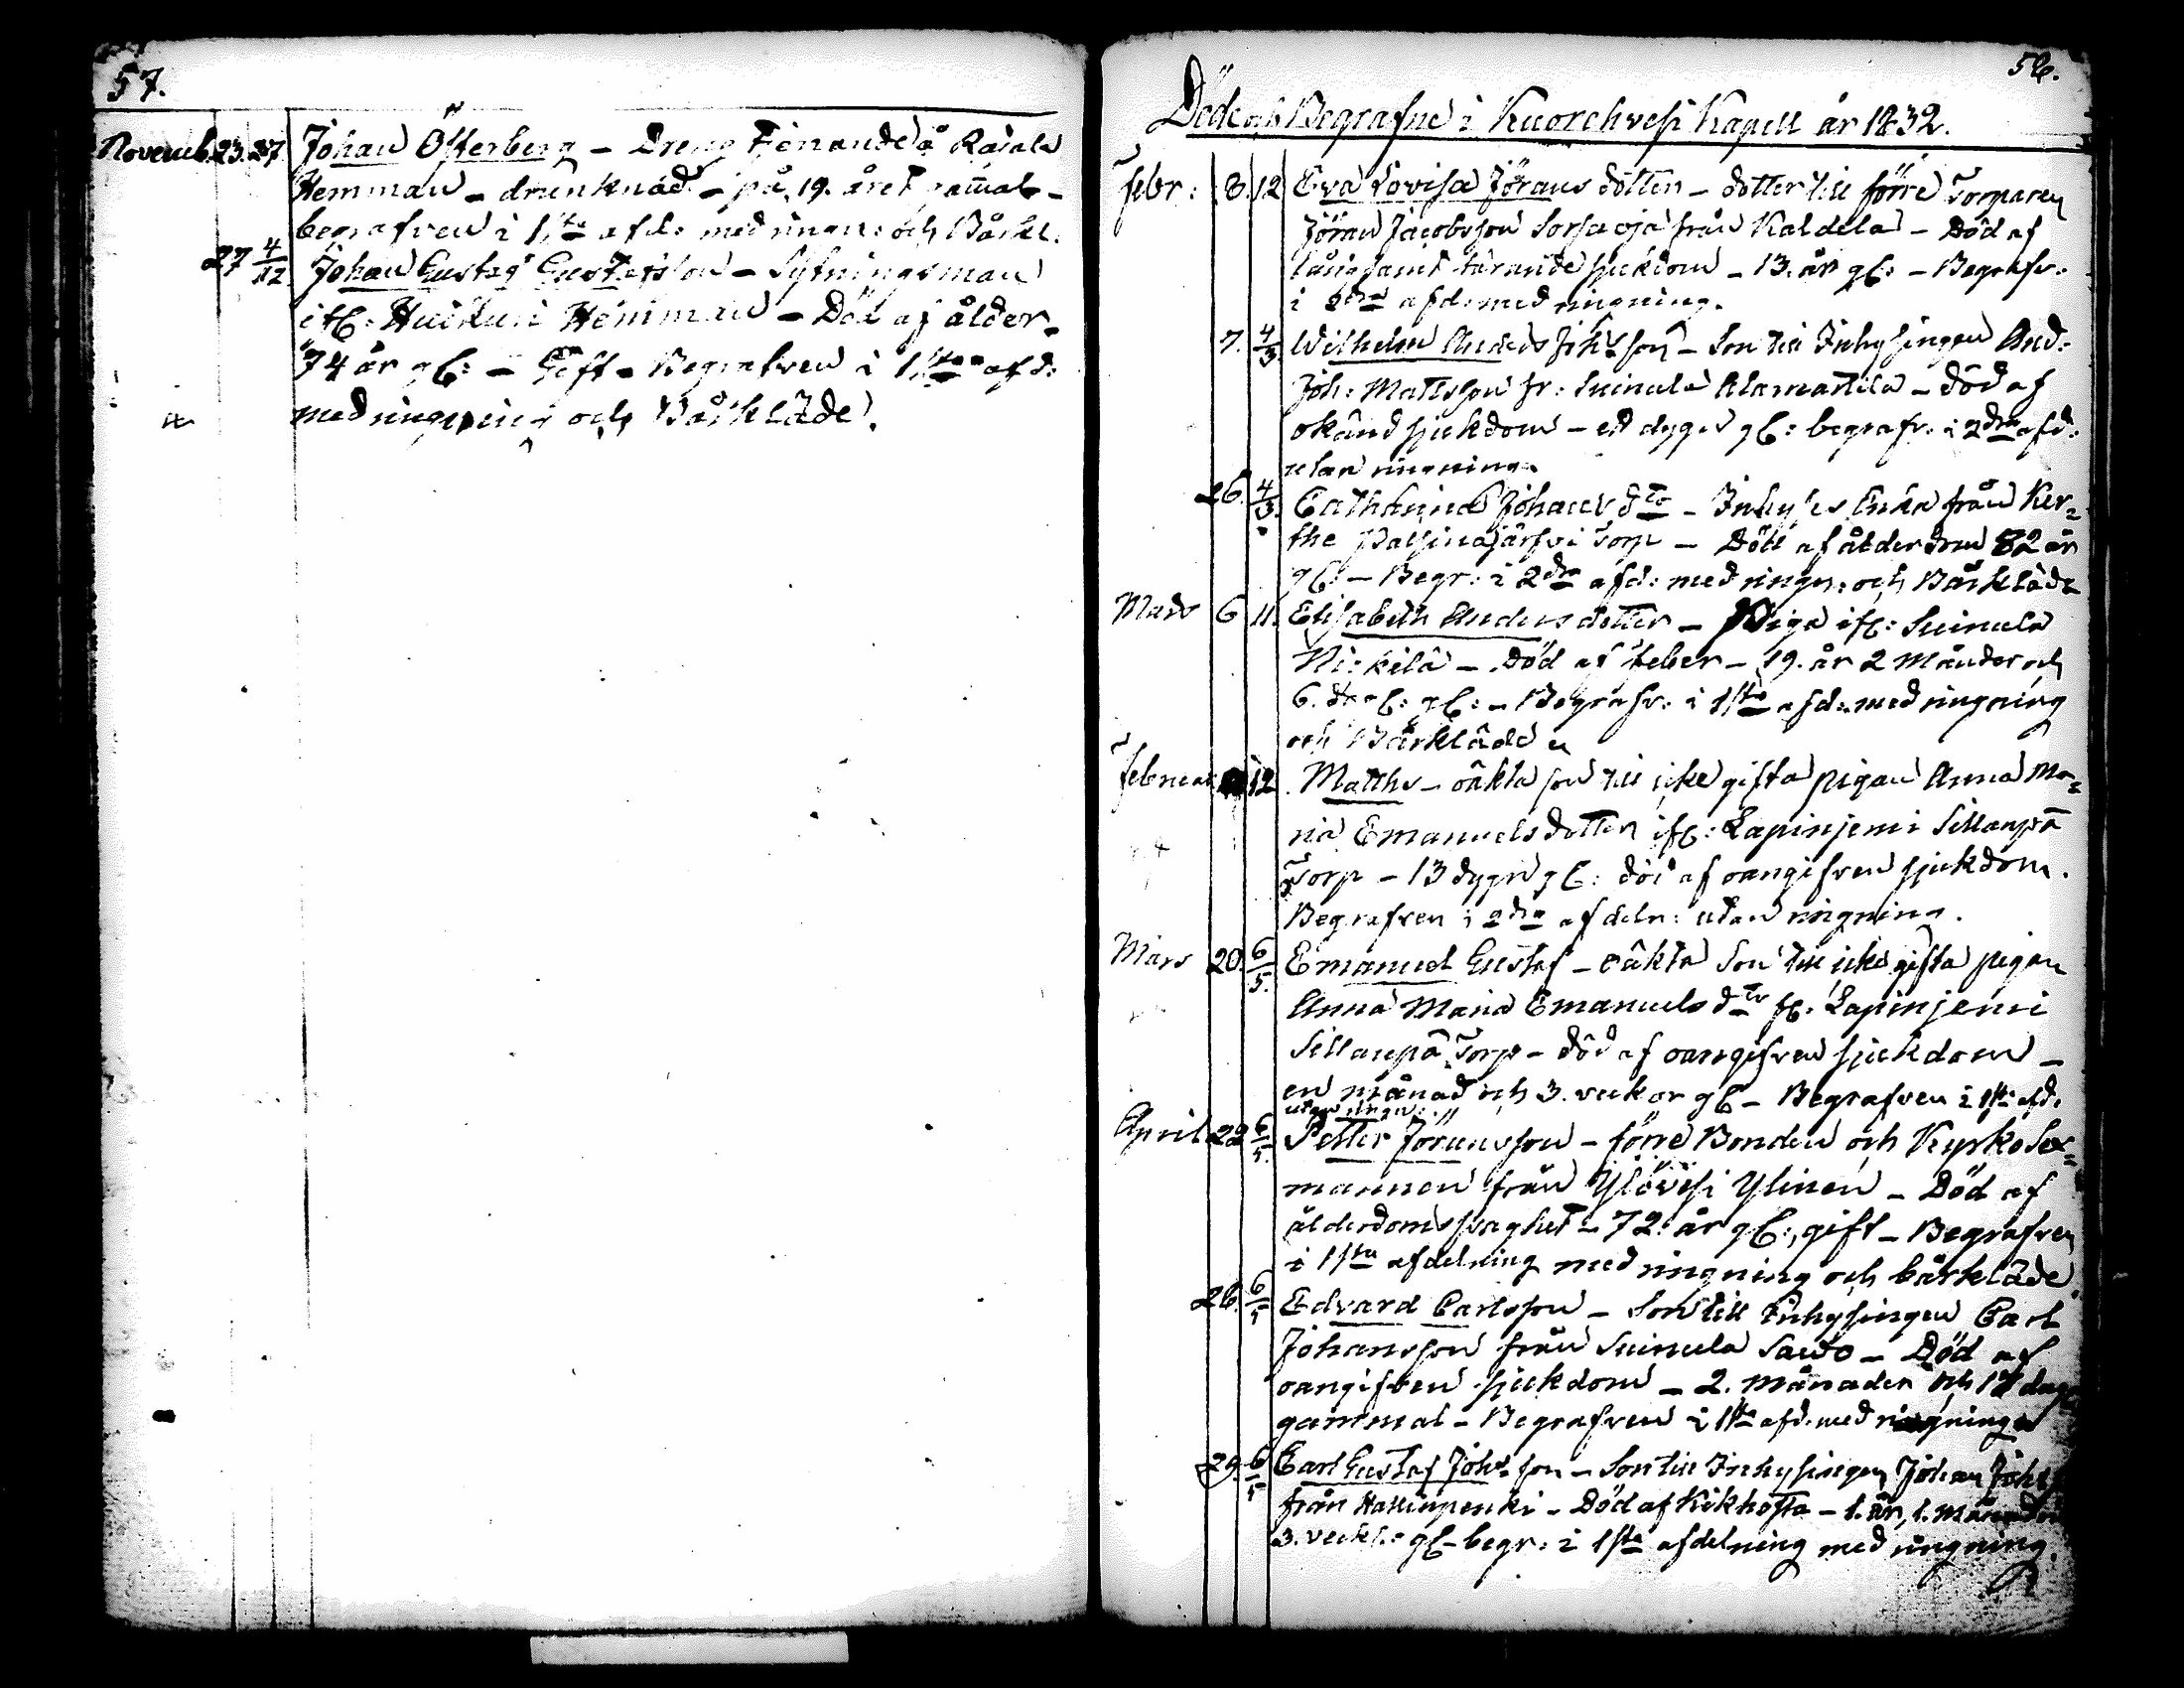 57.
Novemb. 23. 27 Johan Österberg – Dreng tienande å Rajala
Hemman – drunknad – på 19. året gam̄al –
begrafven i 1,sta afd: med ringn: och Bårkl.
27 4/12 Johan Gustaf Gustafsson – Sytningsman
ifl: Huikuri Hemman – Död af ålder –
74 år gl: – Gift – Begrafven i 1,sta afd:
med ringning och Bårkläde.
58.
Döde och Begrafne i Kuorehvesi Kapell år 1832.
Febr: 8. 12 Eva Lovisa Jörans dotter – dotter till förre Torparen
Jöran Jacobsson Sorsa oja från Kaldela – Död af
långsamt tärande sjukdom – 13. år gl: – Begrafv:
i 2dra afd: med ringning.
7. 4/3 Wilhelm Anders Johsson – Son till Inhysingen And:
Joh: Mattsson fr: Suinula Alamattila – död af
okänd sjukdom – ett dygn gl: begrafv: i 2dra afd:
utan ringning.
26. 4/3. Catharina Johans dr – Inhyses Enka från Ker=
the Patsinajärfvi Torp – Död af ålderdom 82 år
gl: – Begr: i 2dra afd: med ringn: och Bårkläde
Mars 6 11. Elisabeth Andersdotter – Piga ifl: Suinula
Nickilä – Död af Feber – 19. år 2 månder och
6. dag: gl: – Begrafv: i 1sta afd: med ringning
och Bårkläde
Februar 12. Matths – oäkta son till icke gifta pigan Anna Ma=
ria Emanuels dotter ifl: Lapinjemi Sillanpä
Torp – 13 dygn gl: död af oangifven sjukdom.
Begrafven i 2dra afdeln: utan ringning.
Mars 20. 6/5. Emanuel Gustaf – oäkta Son till icke gifta pigan
Anna Maria Emanuels dr fl. Lapinjemi
Sillanpä Torp – död af oangifven sjukdom –
en månad och 3. veckor gl – Begrafven i 1sta afd.
utan ringn:
April 22 6/5. Petter Jöransson – förre Bonden och Kyrko Sex=
mannen från Ylövesi Ylinen – Död af
ålderdoms svaghet – 72: år gl:, gift – Begrafven
i 1sta afdelning med ringning och bårkläde.
26. 6/5 Edvard Carlsson – Son till Inhysingen Carl
Johansson från Suinula Sawo – Död af
oangifven sjukdom – 2. månader och 17 dag
gammal – Begrafven i 1sta afd. med ringning
29. 6/5 Carl Gustaf Johs son – Son till Inhysingen Johan Johs
från Hallinpenki – Död af Kikhosta – 1. år, 1. månad
3. veck: gl – begr: i 1sta afdelning med ringning.